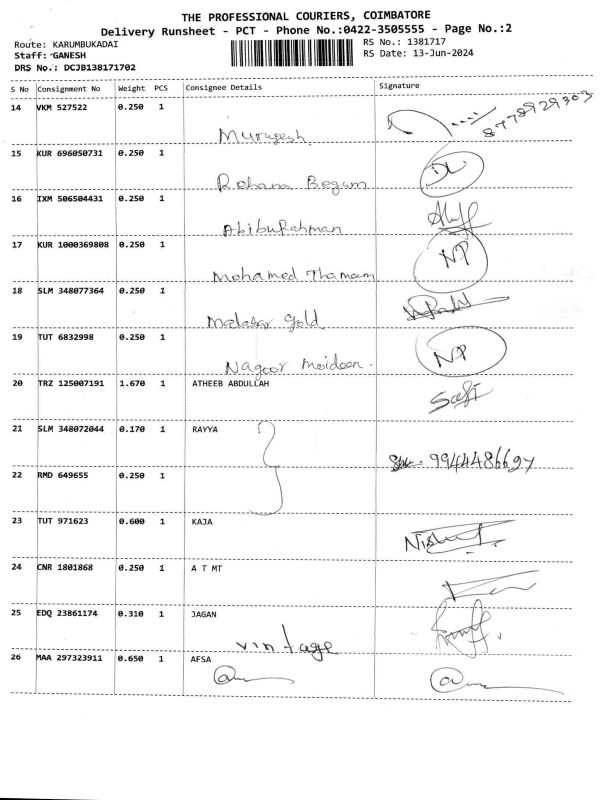 THE PROFESSIONAL COURIERS, COIMBATORE
Delivery Runsheet - PCT - Phone No.:0422-3505555 - Page No.:2
Route: KARUMBUKADAI
Staff: GANESH
DRS No.: DCJB138171702
RS No.: 1381717
RS Date: 13-Jun-2024
S No Consignment No Weight PCS Consignee Details Signature
14 VKM 527522 0.250 1
Murugesh 8778929303
15 KUR 696050731 0.250 1
Rohana Begum
16 IXM 506504431 0.250 1
Abibu Rahman
17 KUR 1000369808 0.250 1
Mohamed Thameem NP
18 SLM 348077364 0.250 1
Malabar gold
19 TUT 6832998 0.250 1
Nagoor moideen. NP
20 TRZ 125007191 1.670 1 ATHEEB ABDULLAH
21 SLM 348072044 0.170 1 RAYYA
9944486627
22 RMD 649655 0.250 1
23 TUT 971623 0.600 1 KAJA
24 CNR 1801868 0.250 1 A T MT
25 EDQ 23861174 0.310 1 JAGAN
vintage
26 MAA 297323911 0.650 1 AFSA